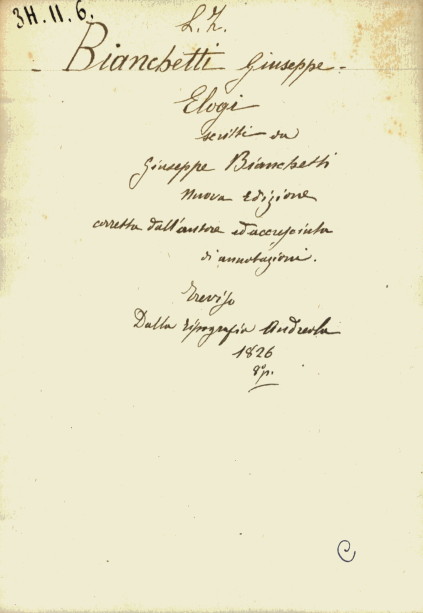 3H.11.6.
L.Z.
Bianchetti Giuseppe.
Elogj
scritti da
Giuseppe Bianchetti
Nuova edizione
corretta dall'autore ed accresciuta
di annotazioni.
Treviso
Dalla tipografia Andreola
1826
8º p.
C